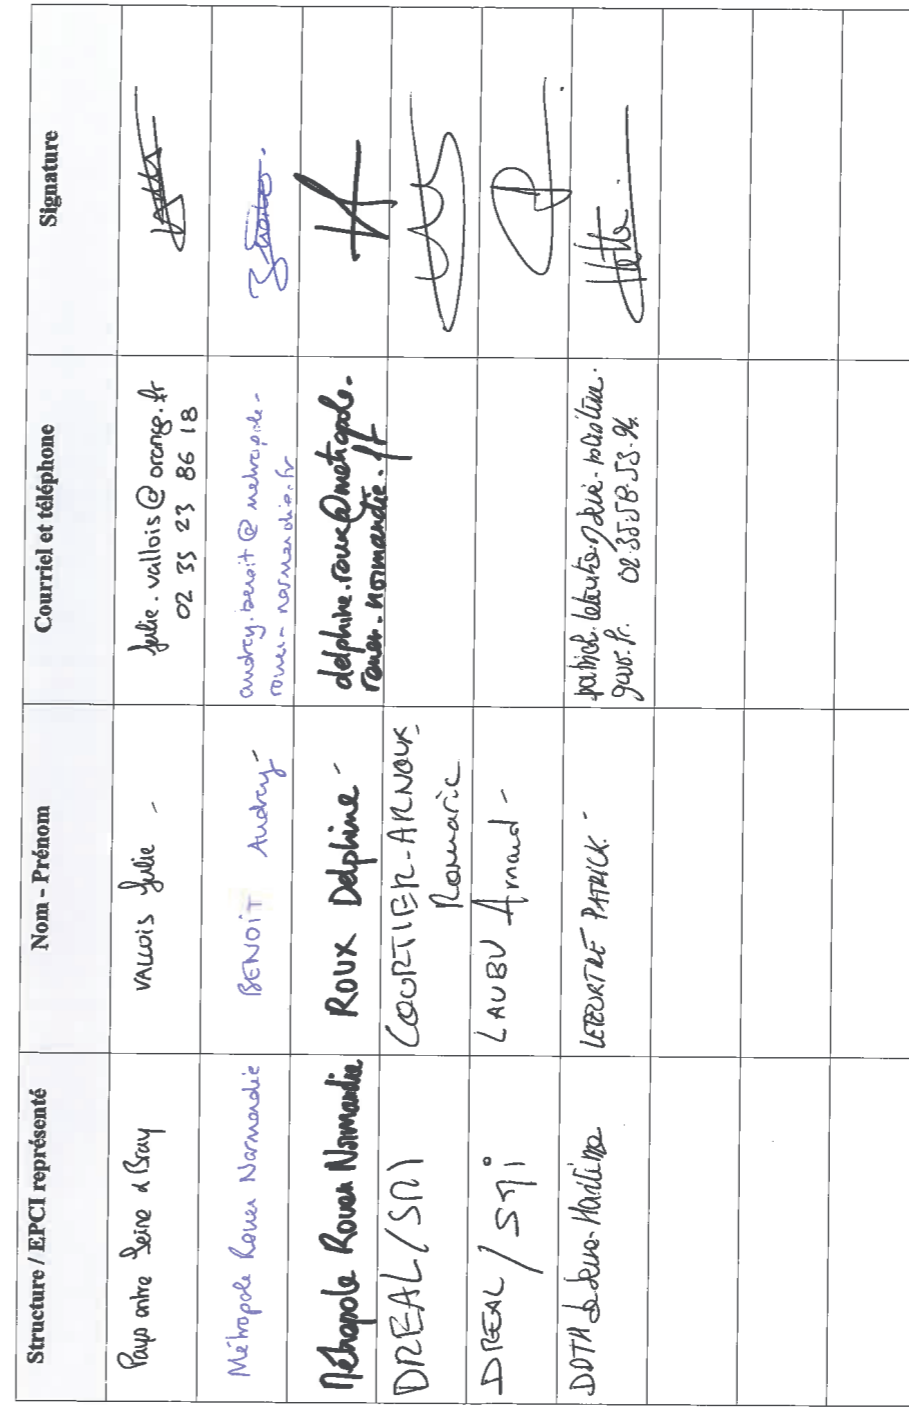 Structure / EPCI représenté
Nom - Prénom
Courriel et téléphone
Signature
Pays entre Seine & Bray
VALLOIS Julie -
julie.vallois@orange.fr
02 35 23 86 18
Métropole Rouen Normandie
BENOIT Audrey -
audrey.benoit@metropole-
rouen-normandie.fr
Métropole Rouen Normandie
ROUX Delphine -
delphine.roux@metropole.
rouen.normandie.fr
DREAL / SMI
COURTIER-ARNOUX
Romaric
DREAL / SMi
LAUBU Arnaud -
DDTM de Seine-Maritime
LETEURTRE PATRICK.
patrick.leteurtre@seine-maritime.
gouv.fr. 02.35.58.53.96